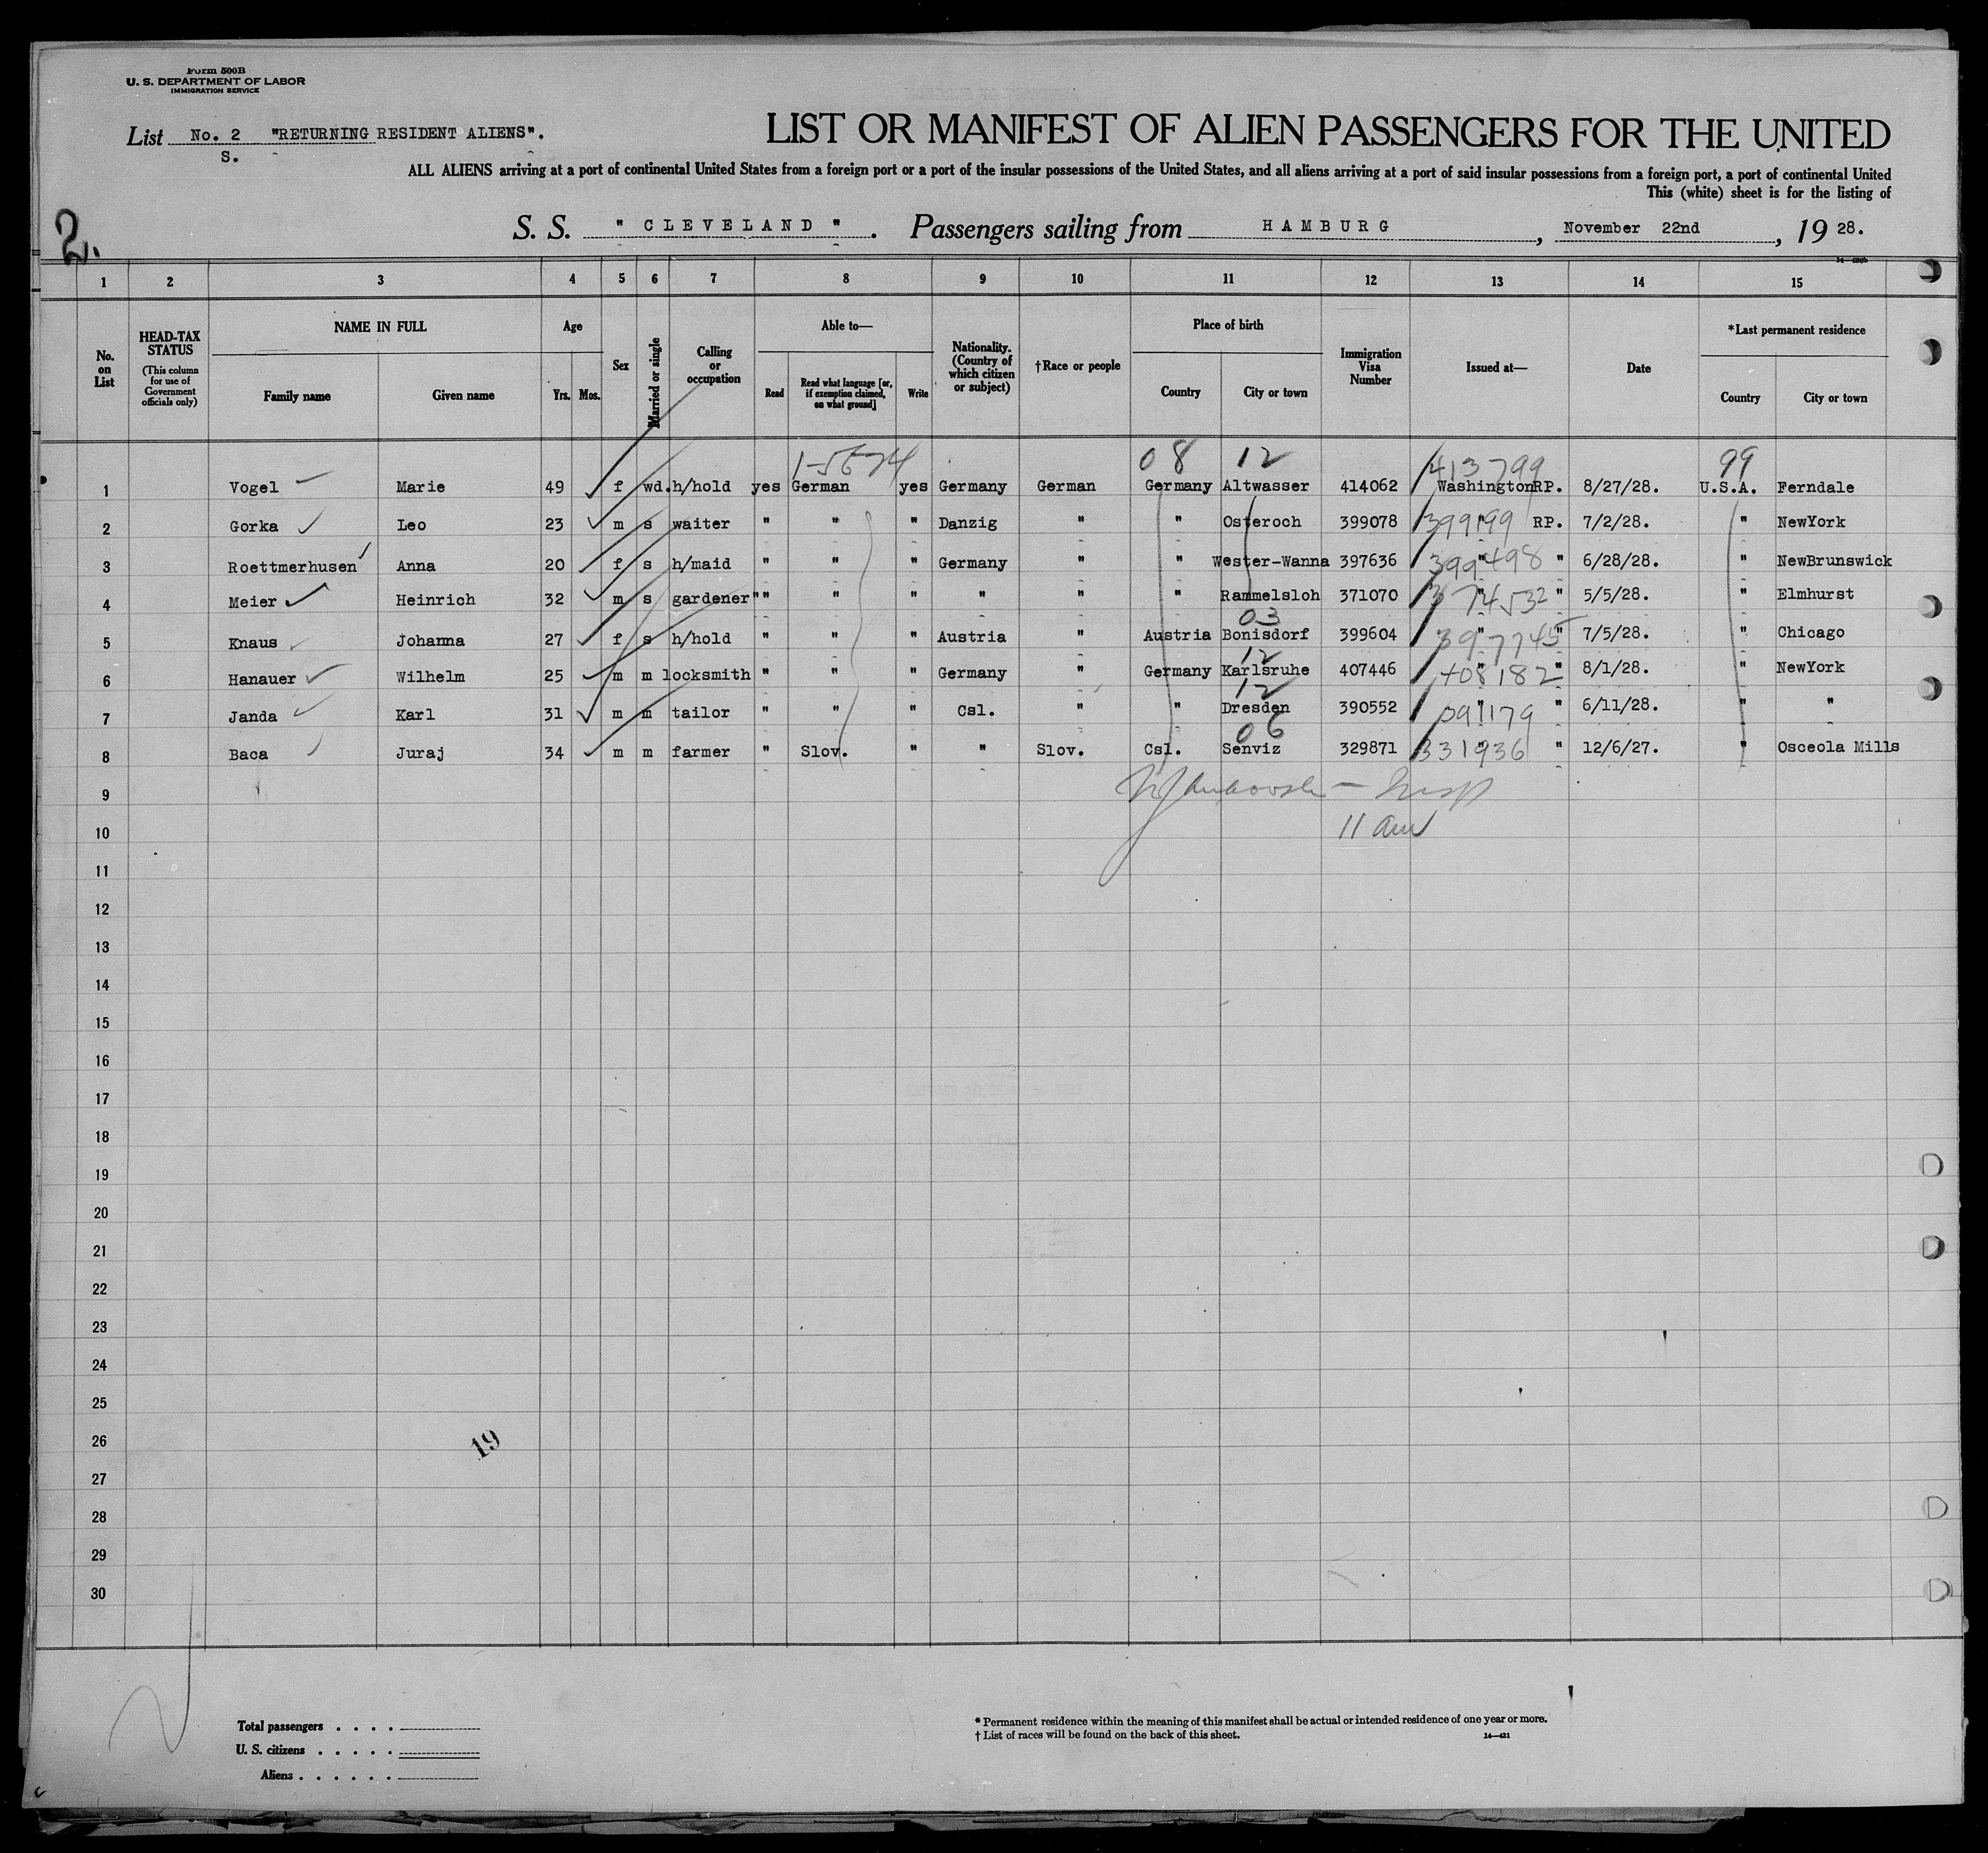 Form 500B
U. S. DEPARTMENT OF LABOR
IMMIGRATION SERVICE
List No. 2 "RETURNING RESIDENT ALIENS".
S.
LIST OR MANIFEST OF ALIEN PASSENGERS FOR THE UNITED
ALL ALIENS arriving at a port of continental United States from a foreign port or a port of the insular possessions of the United States, and all aliens arriving at a port of said insular possessions from a foreign port, a port of continental United
This (white) sheet is for the listing of
2.
S. S. " CLEVELAND ". Passengers sailing from HAMBURG, November 22nd, 19 28.
1 2 3 4 5 6 7 8 9 10 11 12 13 14 15
No. on List
HEAD-TAX STATUS
(This column for use of Government officials only)
NAME IN FULL
Family name Given name
Age
Yrs. Mos.
Sex
Married or single
Calling or occupation
Able to—
Read
Read what language [or, if exemption claimed, on what ground]
Write
Nationality. (Country of which citizen or subject)
†Race or people
Place of birth
Country City or town
Immigration Visa Number
Issued at—
Date
*Last permanent residence
Country City or town
08 12 413799 99
1 Vogel Marie 49 f wd. h/hold yes German yes Germany German Germany Altwasser 414062 Washington RP. 8/27/28. U.S.A. Ferndale
2 Gorka Leo 23 m s waiter " " " Danzig " " Osteroch 399078 399199 " RP. 7/2/28. " NewYork
3 Roettmerhusen Anna 20 f s h/maid " " " Germany " " Wester-Wanna 397636 399498 " " 6/28/28. " NewBrunswick
4 Meier Heinrich 32 m s gardener " " " " " " " Rammelsloh 371070 374532 " " 5/5/28. " Elmhurst
03
5 Knaus Johanna 27 f s h/hold " " " Austria " Austria Bonisdorf 399604 397745 " " 7/5/28. " Chicago
12
6 Hanauer Wilhelm 25 m m locksmith " " " Germany " Germany Karlsruhe 407446 408182 " 8/1/28. " NewYork
12
7 Janda Karl 31 m m tailor " " " Csl. " " Dresden 390552 091179 " " 6/11/28. " "
06
8 Baca Juraj 34 m m farmer " Slov. " " Slov. Csl. Senviz 329871 331936 " " 12/6/27. " Osceola Mills
9
10 11 am
11
12
13
14
15
16
17
18
19
20
21
22
23
24
25
26
19
27
28
29
30
Total passengers . . . .
U. S. citizens . . . . .
Aliens . . . . . .
* Permanent residence within the meaning of this manifest shall be actual or intended residence of one year or more.
† List of races will be found on the back of this sheet.
14—431